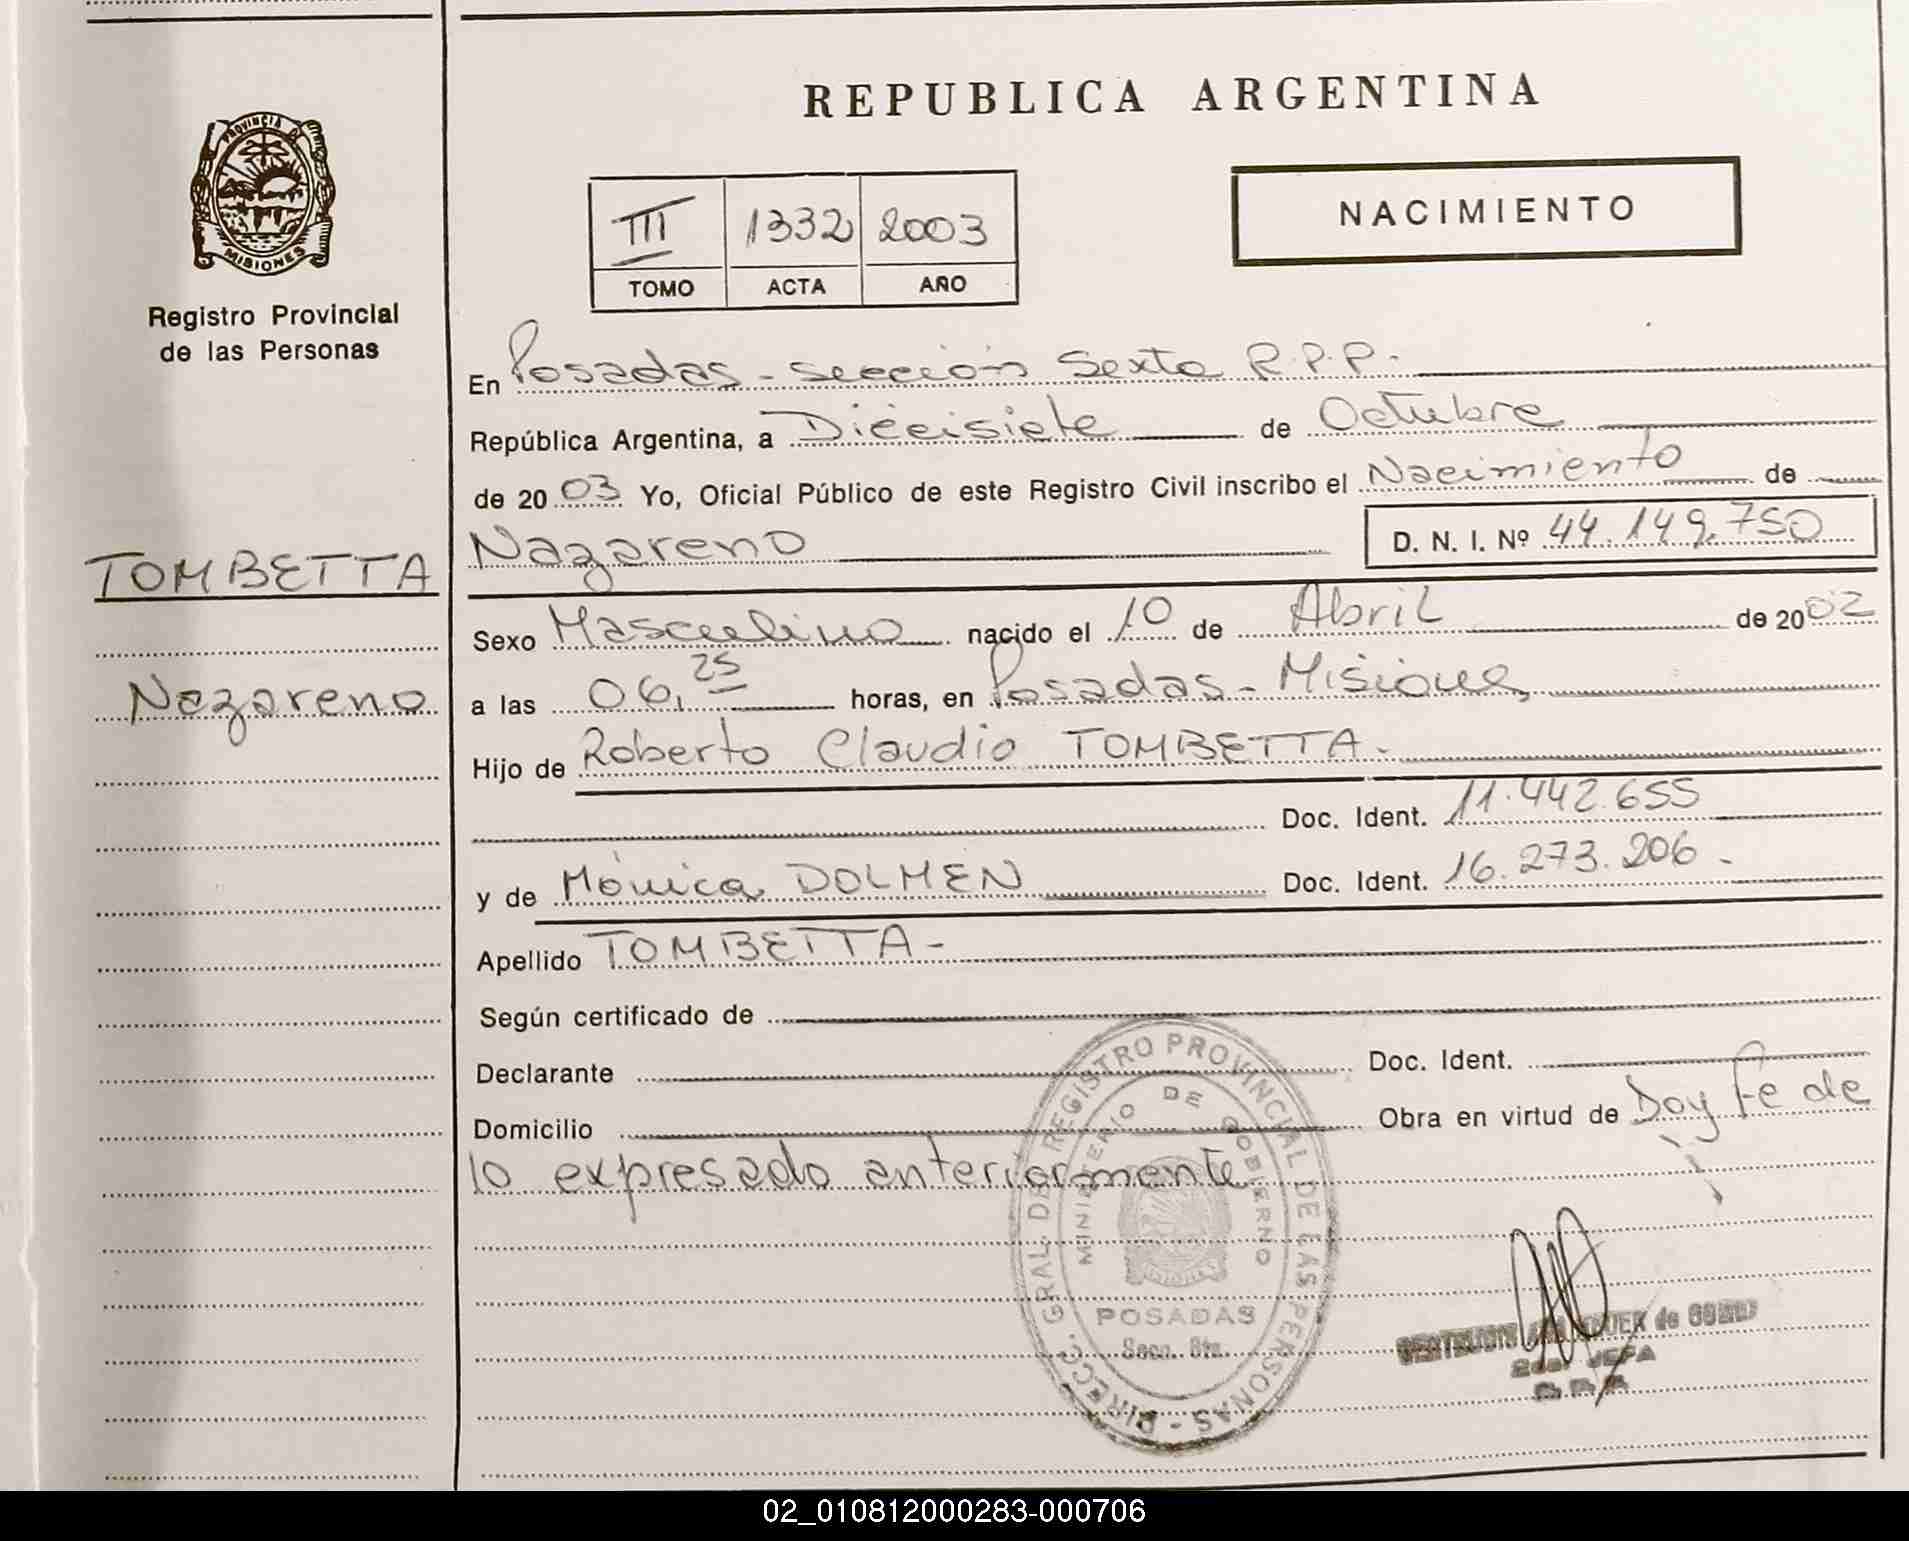 REPUBLICA ARGENTINA
PROVINCIA DE
MISIONES
Registro Provincial
de las Personas
III 1332 2003
TOMO ACTA AÑO
NACIMIENTO
En Posadas - sección Sexta R.P.P.
República Argentina, a Diecisiete de Octubre
de 2003 Yo, Oficial Público de este Registro Civil inscribo el Nacimiento de
Nazareno
D. N. I. Nº 44.149.750
TOMBETTA
Nazareno
Sexo Masculino nacido el 10 de Abril de 2002
a las 06,25 horas, en Posadas - Misiones
Hijo de Roberto Claudio TOMBETTA.-
Doc. Ident. 11.442.655
y de Mónica DOLMEN Doc. Ident. 16.273.206 -
Apellido TOMBETTA -
Según certificado de
Declarante Doc. Ident.
Domicilio Obra en virtud de Doy fe de
lo expresado anteriormente
DIRECC. GRAL. DE REGISTRO PROVINCIAL DE LAS PERSONAS -
MINISTERIO DE GOBIERNO
POSADAS
Secc. 6ta.
de
2da. JEFA
02_010812000283-000706